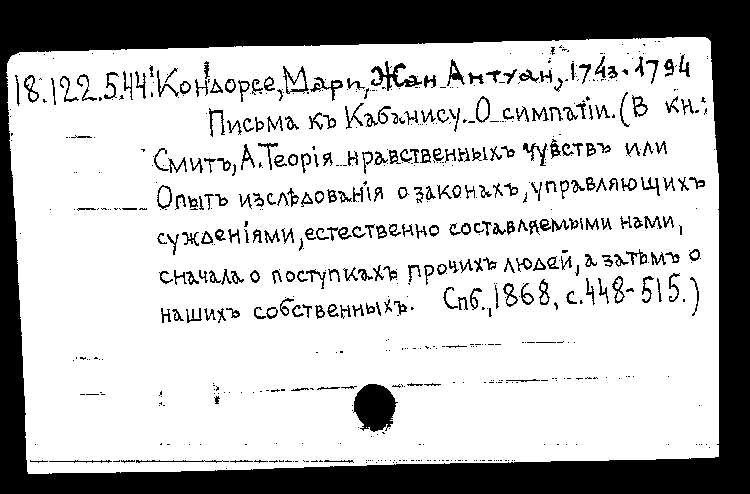 18.122.5.44. Кондорсе, Мари, Жан Антуан, 1743-1794
Письма къ Кабанису. О симпатіи. (В кн.:
Смитъ, А. Теорія нравственныхъ чувствъ или
Опытъ изслѣдованія о законахъ, управляющихъ
сужденіями, естественно составляемыми нами,
сначала о поступкахъ прочихъ людей, а затѣмъ о
нашихъ собственныхъ. Спб., 1868, с. 448-515.)